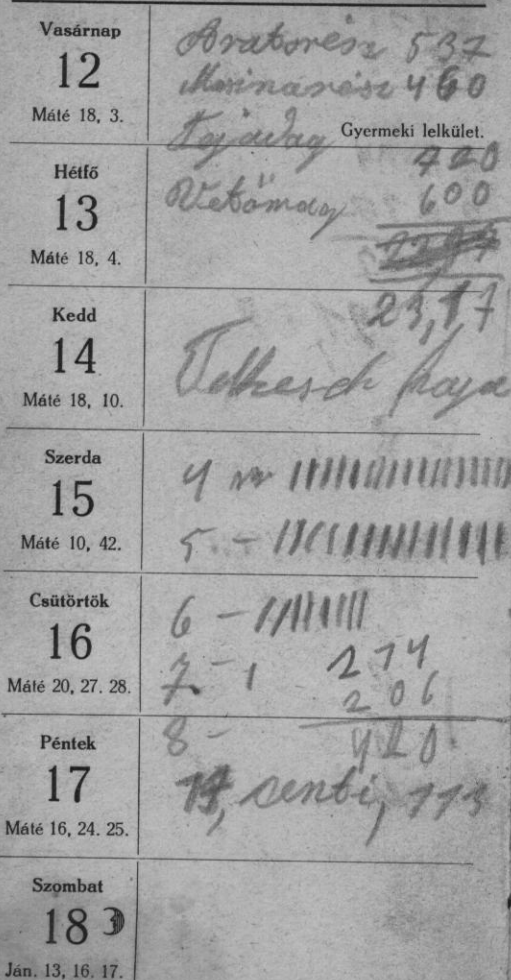 Vasárnap
12
Máté 18, 3.
Aratorész 537
Masinarész 460
Fejadag 720
Gyermeki lelkület.
Hétfő
13
Máté 18, 4.
Vetőmag 600
23,17
Kedd
14
Máté 18, 10.
Szerda
15
Máté 10, 42.
4
5 -
Csütörtök
16
Máté 20, 27. 28.
6 -
7 - 1
214
206
Péntek
17
Máté 16, 24. 25.
8 -
420
senbi, 113
Szombat
18
Ján. 13, 16. 17.